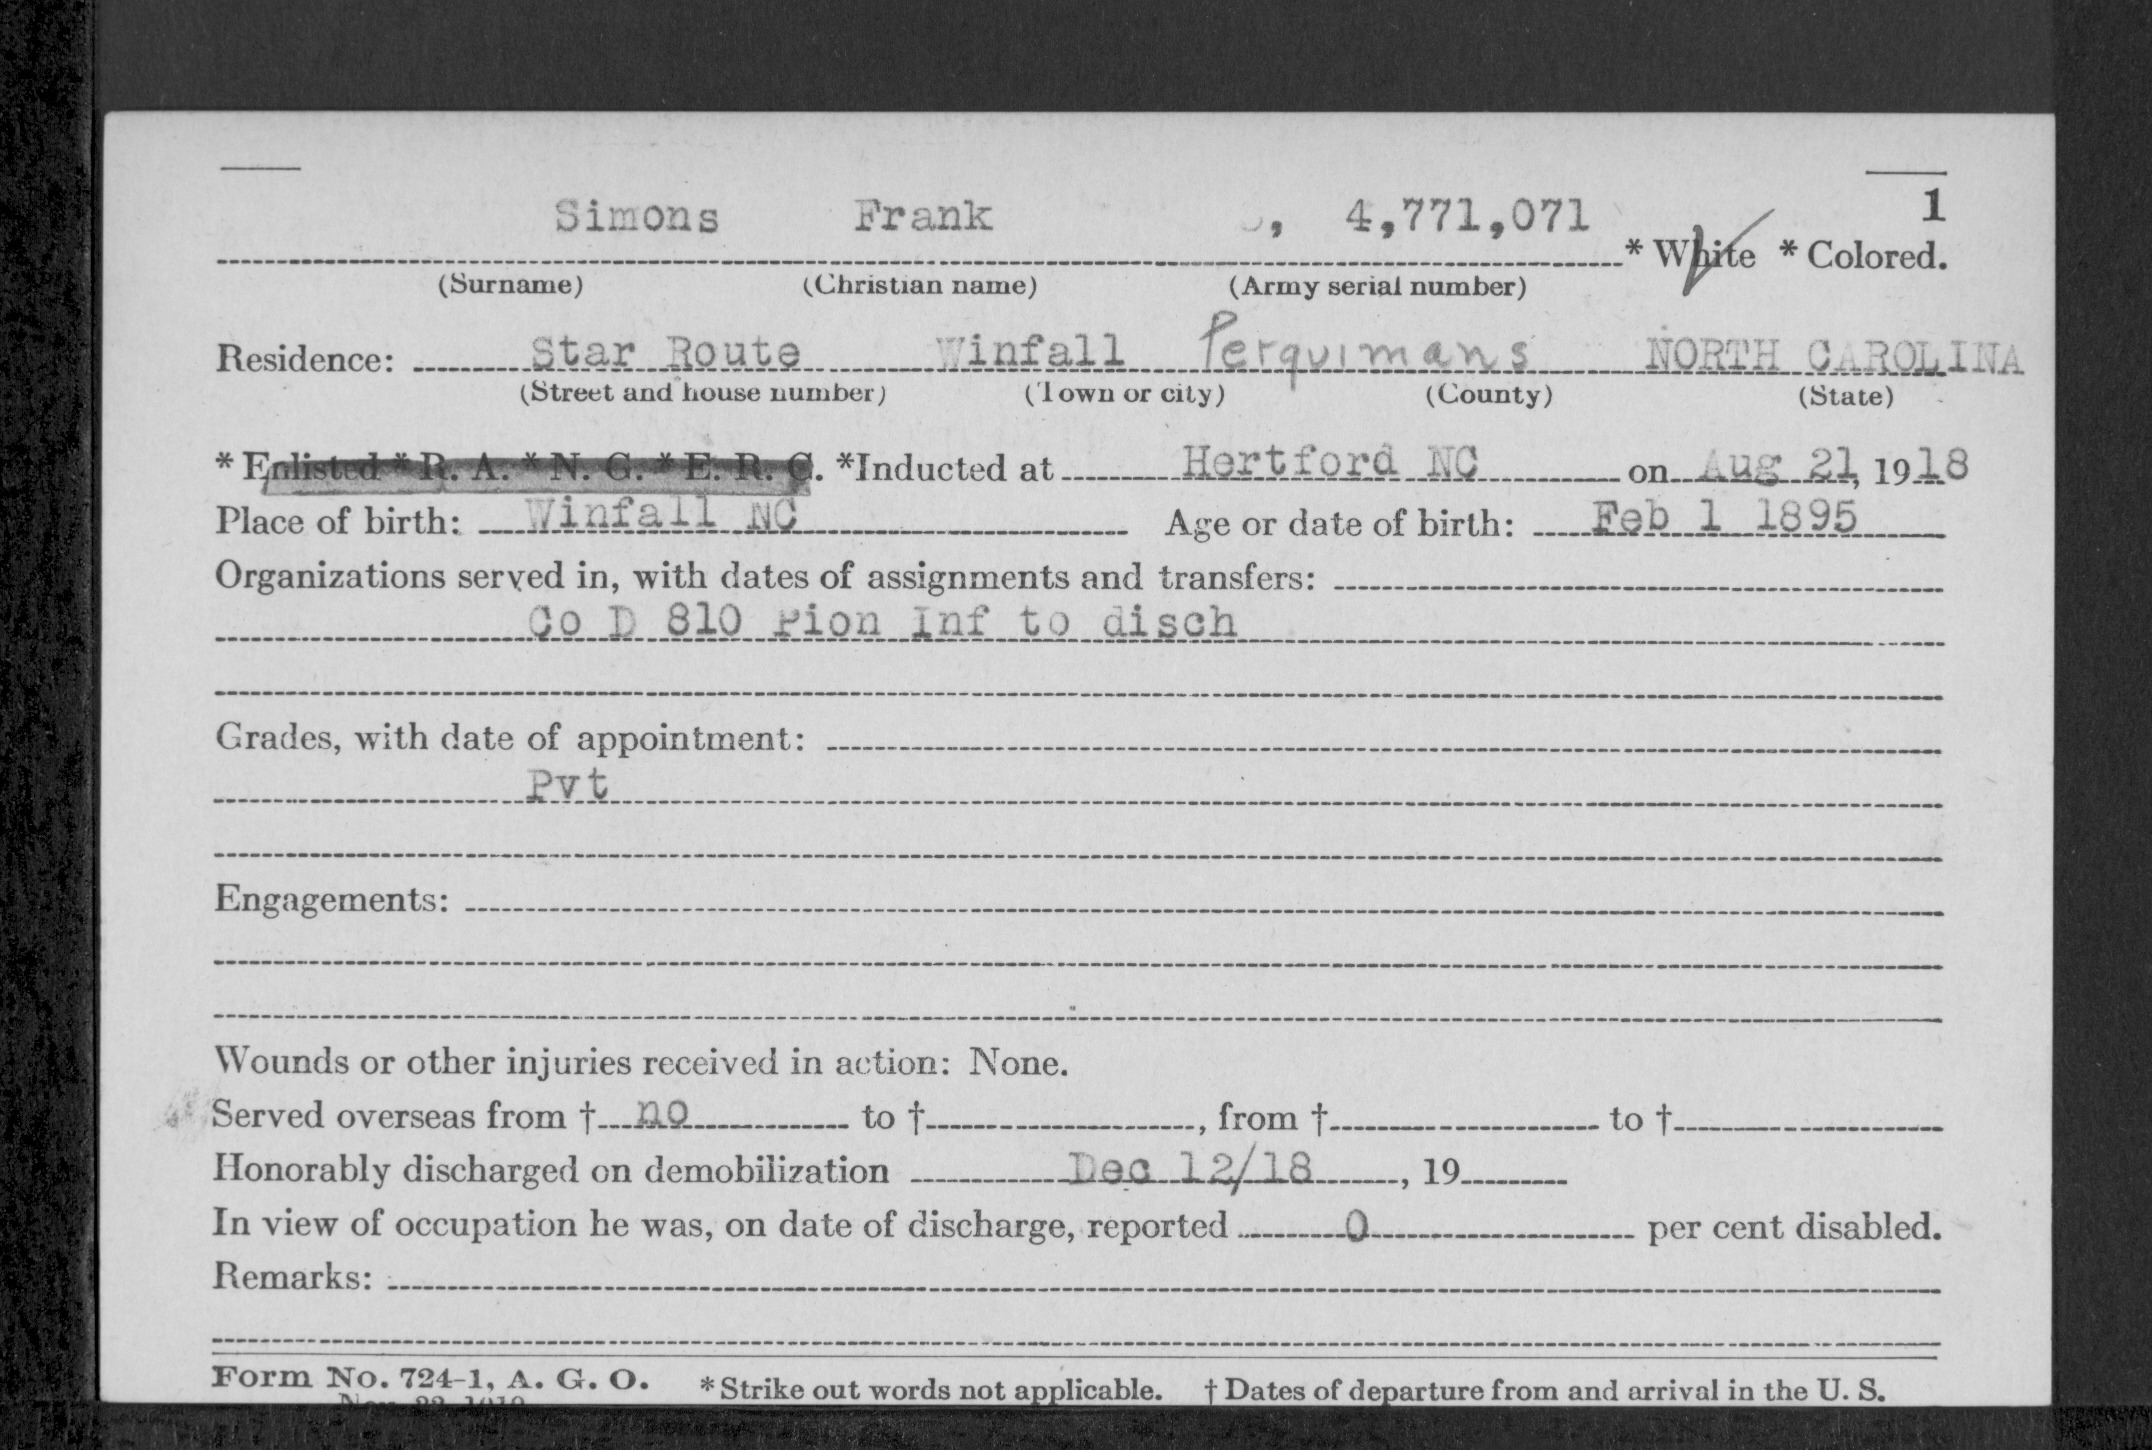 1
Simons Frank , 4,771,071 * White * Colored.
(Surname) (Christian name) (Army serial number)
Residence: Star Route Winfall Perquimans NORTH CAROLINA
(Street and house number) (Town or city) (County) (State)
* Enlisted * R. A. * N. G. * E. R. C. *Inducted at Hertford NC on Aug 21, 1918
Place of birth: Winfall NC Age or date of birth: Feb 1 1895
Organizations served in, with dates of assignments and transfers:
Co D 810 Pion Inf to disch
Grades, with date of appointment:
Pvt
Engagements:
Wounds or other injuries received in action: None.
Served overseas from † no to †, from † to †
Honorably discharged on demobilization Dec 12/18, 19
In view of occupation he was, on date of discharge, reported 0 per cent disabled.
Remarks:
Form No. 724-1, A. G. O. * Strike out words not applicable. † Dates of departure from and arrival in the U. S.